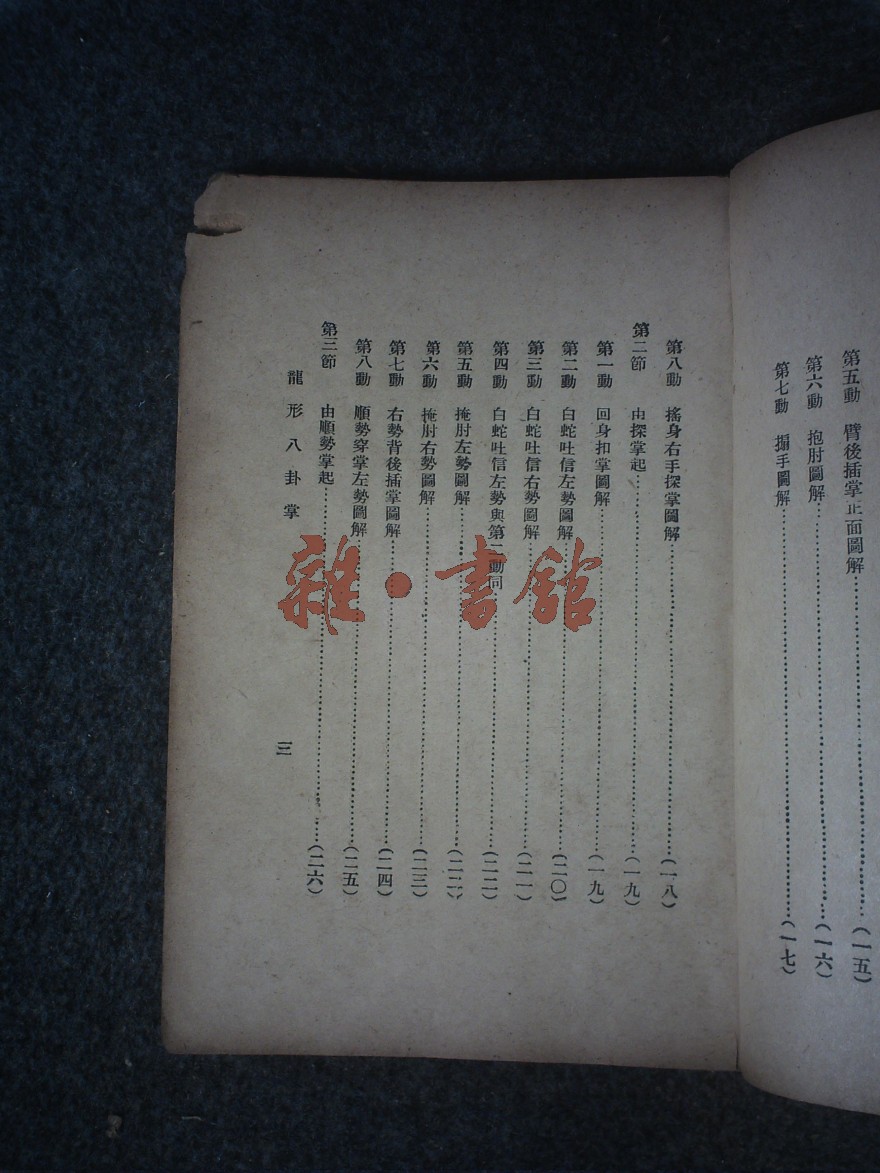 第五動　臂後插掌正面圖解……(一五)
第六動　抱肘圖解……(一六)
第七動　搨手圖解……(一七)
第八動　搖身右手探掌圖解……(一八)
第二節　由探掌起……(一九)
第一動　回身扣掌圖解……(一九)
第二動　白蛇吐信左勢圖解……(二〇)
第三動　白蛇吐信右勢圖解……(二一)
第四動　白蛇吐信左勢與第二動同……(二二)
第五動　掩肘左勢圖解……(二二)
第六動　掩肘右勢圖解……(二三)
第七動　右勢背後插掌圖解……(二四)
第八動　順勢穿掌左勢圖解……(二五)
第三節　由順勢掌起……(二六)
龍形八卦掌　三
雜·書館